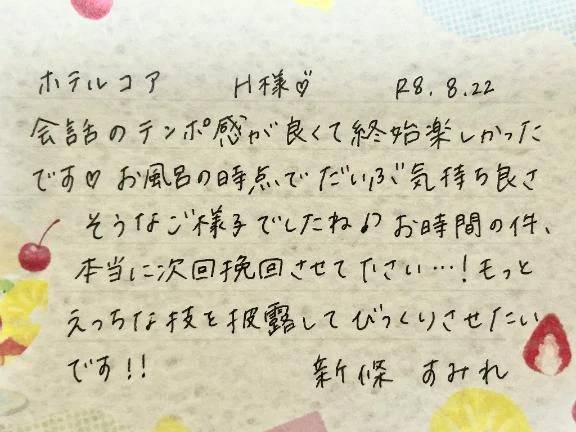 ホテルコア H様♡ R8.8.22
会話のテンポ感が良くて終始楽しかった
です♡ お風呂の時点でだいぶ気持ち良さ
そうなご様子でしたね♪ お時間の件、
本当に次回挽回させて下さい…！もっと
えっちな技を披露してびっくりさせたい
です！！ 新條 すみれ